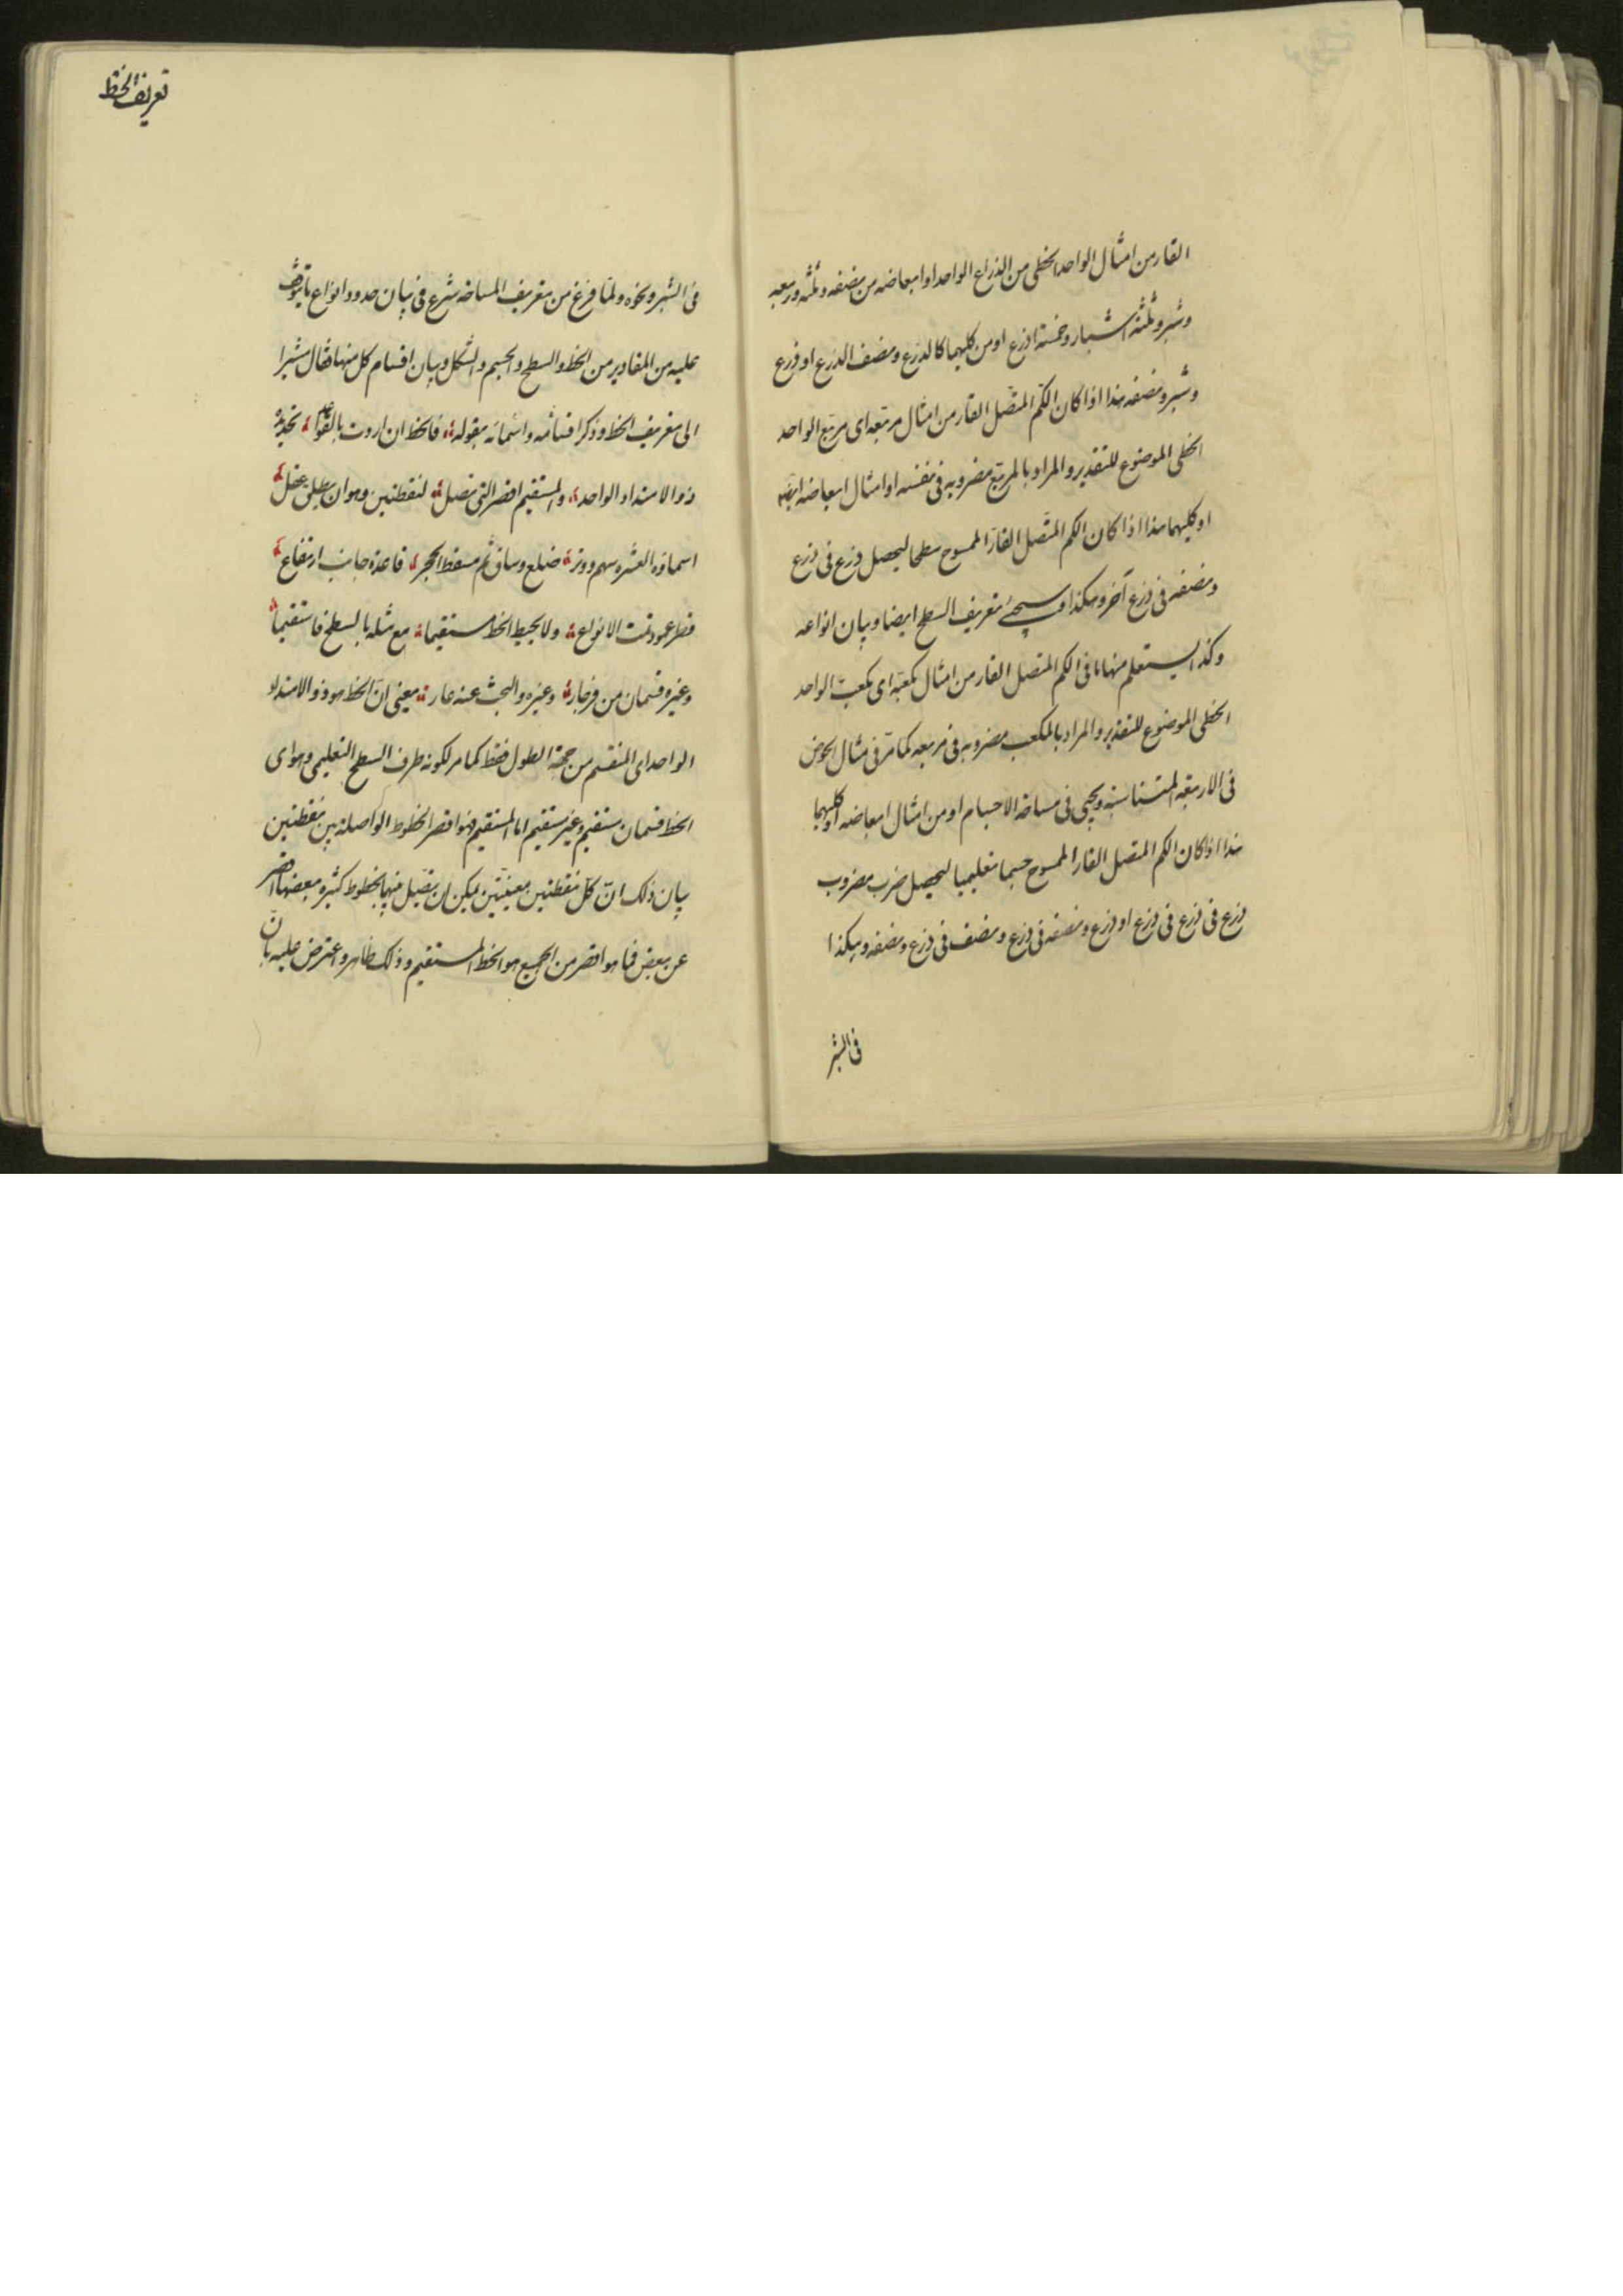 القار من امثال الواحد الخطى من الذراع الواحد او ابعاضه من نصفه وثلثه وربعه
وشبر وثلثة اشبار وخمسة اذرع او من كليهما كالذرع ونصف الذرع او ذرع
وشبر ونصفه هذا اذا كان الكم المتصل القار من امثال مربعه اى مربع الواحد
الخطى الموضوع للتقدير والمراد بالمربع مضروبه فى نفسه او امثال ابعاضه ايضا
او كليهما هذا اذا كان الكم المتصل القار الممسوح سطحا ليحصل ذرع فى ذرع
ونصفه فى ذرع آخر وهكذا وسيجئ تعريف السطح ايضا وبيان انواعه
وكذا يستعلم منها ما فى الكم المتصل القار من امثال مكعبه اى مكعب الواحد
الخطى الموضوع للتقدير والمراد بالمكعب مضروبه فى مربعه كما مر فى مثال الحوض
فى الاربعة المتناسبة ويجئ فى مساحة الاجسام او من امثال ابعاضه او كليهما
هذا اذا كان الكم المتصل القار الممسوح جسما تعليميا ليحصل ضرب مضروب
ذرع فى ذرع فى ذرع او ذرع ونصفه فى ذرع ونصف فى ذرع ونصفه وهكذا
فى الشبر
تعريف الخط
فى الشبر ونحوه ولما فرغ من تعريف المساحة شرع فى بيان حدود انواع ما يتوقف
عليه من المقادير من الخط والسطح والجسم والشكل وبيان اقسام كل منها فقال مشيرا
الى تعريف الخط وذكر اقسامه واسمائه بقوله فالخط ان اردت بالقواعد تحديده
ذو الامتداد الواحد والمستقيم اقصر التى تصل لنقطتين وهو ان يطلق عضل
اسماؤه العشره سهم ووتر ضلع وساق ثم مسقط الحجر قاعدة جانب ارتفاع
قطر عمود تمت الانواع ولا يحيط الخط مستقيما مع مثله بالسطح فاستقيما
وغيره قسمان من فرجار وغيره والبحث عنه عار يعنى ان الخط هو ذو الامتداد
الواحد اى المنقسم من جهة الطول فقط كما مر لكونه طرف السطح التعليمى وهو اى
الخط قسمان مستقيم وغير مستقيم اما المستقيم فهو اقصر الخطوط الواصلة بين نقطتين
بيان ذلك ان كل نقطتين معينتين يمكن ان يتصل بينهما بخطوط كثيرة بعضها اقصر
عن بعض فما هو اقصر من الجميع هو الخط المستقيم وذلك ظاهر واعترض عليه بان